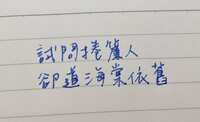 試問捲簾人
卻道海棠依舊